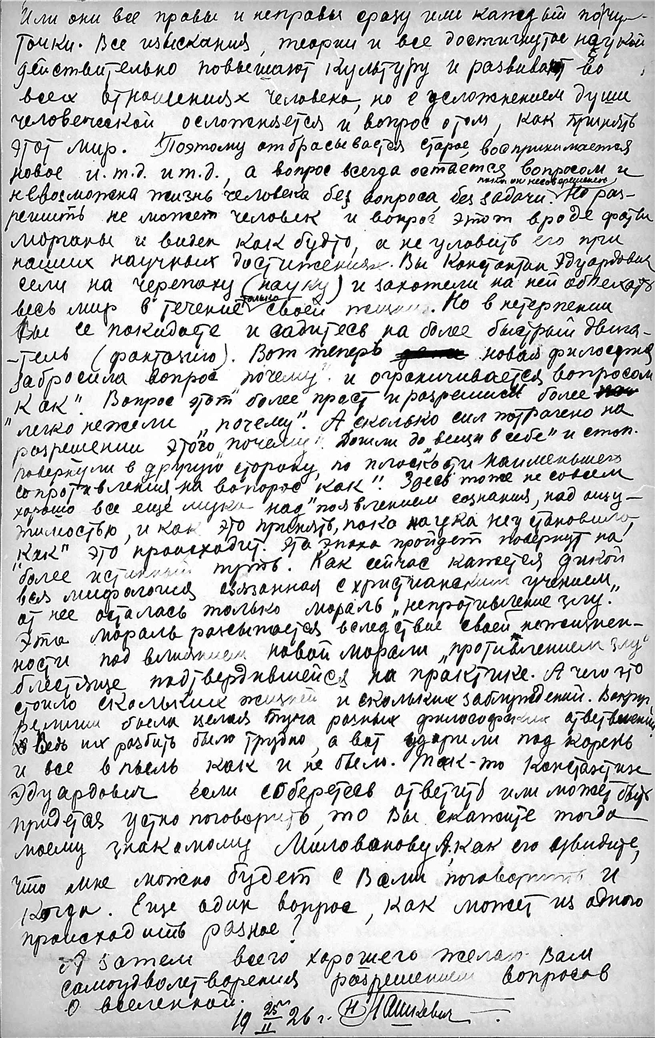 Или они все правы и неправы сразу или каждый по чу-
точки. Все изыскания, теории и все достигнутое наукой
действительно повышают культуру и развивают во
всех отношениях человека, но с осложнением души
человеческой осложняется и вопрос о том, как принять
этот мир. Поэтому отбрасывается старое, воспринимается
новое и.т.д. и т.д., а вопрос всегда остается вопросом и
пока он несовершенен,
невозможна жизнь человека без вопроса без задачи. Но раз-
решить не может человек и вопрос этот вроде фата
морганы и виден как будто, а не уловить его при
наших научных достижениях. Вы Константин Эдуардович
сели на черепаху (науку) и захотели на ней объехать
весь мир в течение только своей жизни. Но в нетерпении
Вы ее покидаете и садитесь на более быстрый двига-
-тель (фантазию). Вот теперь новая философия
забросила вопрос "почему" и ограничивается вопросом
"как". Вопрос этот более прост и разрешим более
легко нежели "почему". А сколько сил потрачено на
разрешении этого "почему". Дошли до "вещи в себе" и стоп.
повернули в другую сторону по плоскости наименьшего
сопротивления на вопрос "как". Здесь тоже не совсем
хорошо все еще мука над "появлением сознания, над ощу-
тимостью, и как это принять, пока наука не установила,
"как" это происходит. Эта эпоха пройдет повернут на
более истинный путь. Как сейчас кажется дикой
вся мифология связанная с христианским учением,
от нее осталась только мораль "непротивление злу".
Эта мораль рассыпается вследствие своей нежизнен-
ности под влиянием новой морали "противлением злу"
блестяще подтвердившейся на практике. А чего это
стоило скольких жизней и скольких заблуждений. Вокруг
религии была целая туча разных философских ответвлений
Ведь их разбить было трудно, а вот ударили под корень
и все в пыль как и не было. Так-то Константин
Эдуардович если соберетесь ответить или может быть
придется устно поговорить, то Вы скажите тогда
моему знакомому Милованову А. как его увидите,
что мне можно будет с Вами поговорить и
когда. Еще один вопрос, как может из одного
происходить разное?
А затем всего хорошего желаю Вам
самоудовлетворения разрешением вопросов
о вселенной.
19 25/II 26 г. Н Лашкевич